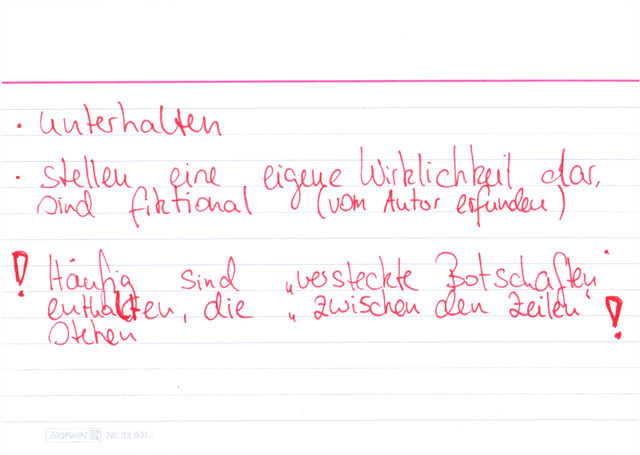 · unterhalten
· stellen eine eigene Wirklichkeit dar,
sind fiktional (vom Autor erfunden)
! Häufig sind „versteckte Botschaften"
enthalten, die „zwischen den Zeilen"
stehen !
BRUNNEN Nr. 22 901